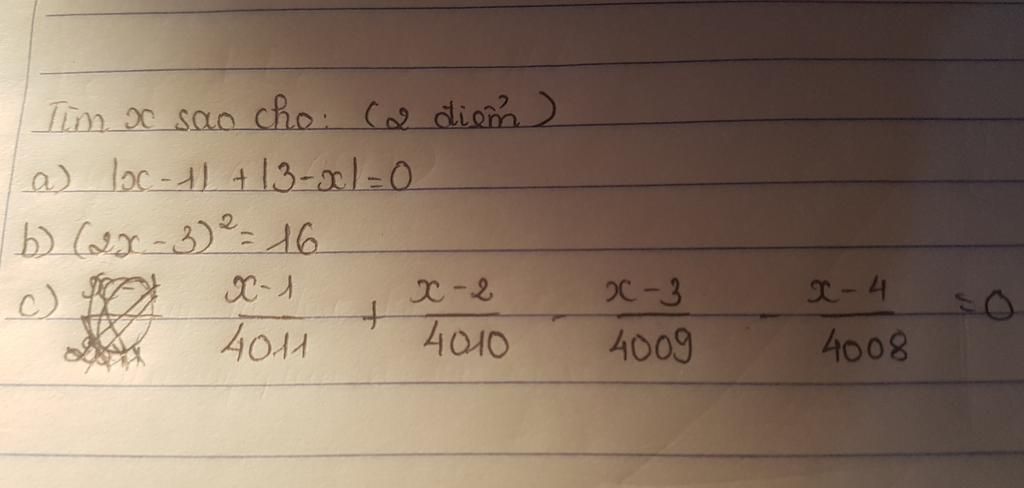 Tìm x sao cho: (2 điểm)
a) |x-1| + |3-x| = 0
b) (2x-3)² = 16
c) x-1/4011 + x-2/4010 - x-3/4009 - x-4/4008 = 0